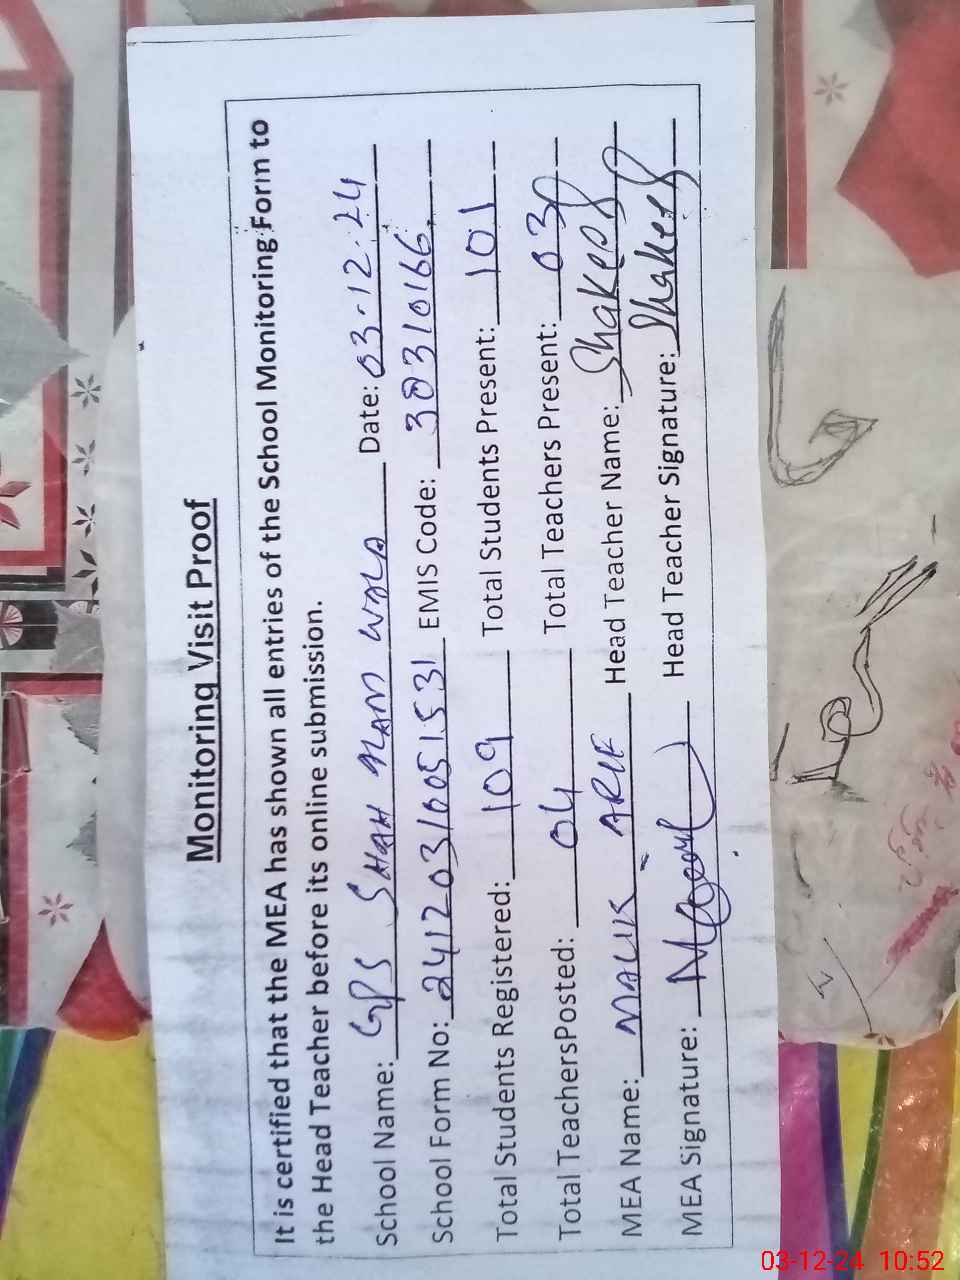 Monitoring Visit Proof
It is certified that the MEA has shown all entries of the School Monitoring Form to
the Head Teacher before its online submission.
School Name: GPS SHAH WALA Date: 03-12-24
School Form No: 24120310051531 EMIS Code: 30310166
Total Students Registered: 109 Total Students Present: 101
Total TeachersPosted: 04 Total Teachers Present: 03
MEA Name: MALIK ARIF Head Teacher Name: Shakeel
MEA Signature: Head Teacher Signature: Shakeel
03-12-24 10:52